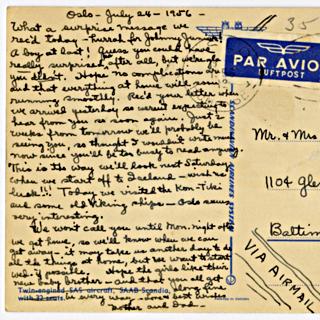 Oslo - July 24 - 1956 -
What a surprise message we
rec'd today. Hurrah for Johnny Junior!
A boy at last! Guess you could have
really surprised after all, but we're glad
you didn't. Hope no complications
and that everything at home will soon be
running smoothly. We'd your letter when
we arrived in so weren't expecting to
hear from you so soon again. Just 2
weeks from tomorrow we'll probably be
seeing you, so thought I wouldn't write more
now since you'll be too busy to read anyway.
This is the way we'll look next Saturday
when we start off to Iceland - wish us
luck!!! Today we visited the Kon-Tiki
and some old Viking ships - Oslo seems
very interesting.
We won't call you until Mon. night after
we get home, so we'll know when we can
get away - it may take us another day to
do the things at home, but we want to start
Wed. if possible. Hope the girls like their
new baby brother - and that you all get
along fine
in every way - love & best wishes
Mother and Dad -
Twin-engined SAS aircraft, SAAB Scandia,
with 32 seats.
35
PAR AVION
LUFTPOST
Mr. & Mrs
1104 Gle
Baltim
VIA AIRMAIL